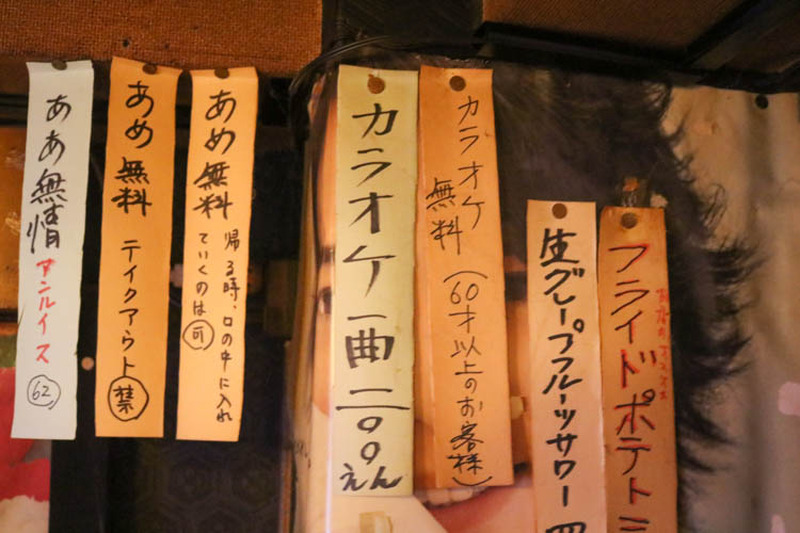 フライドポテト
生グレープフルーツサワー 四
カラオケ
無料
(60才以上のお客様)
カラオケ一曲二〇〇
えん
あめ無料
帰る時、口の中に入れ
ていくのは可
あめ無料 テイクアウト禁
ああ無情 アンルイス 62